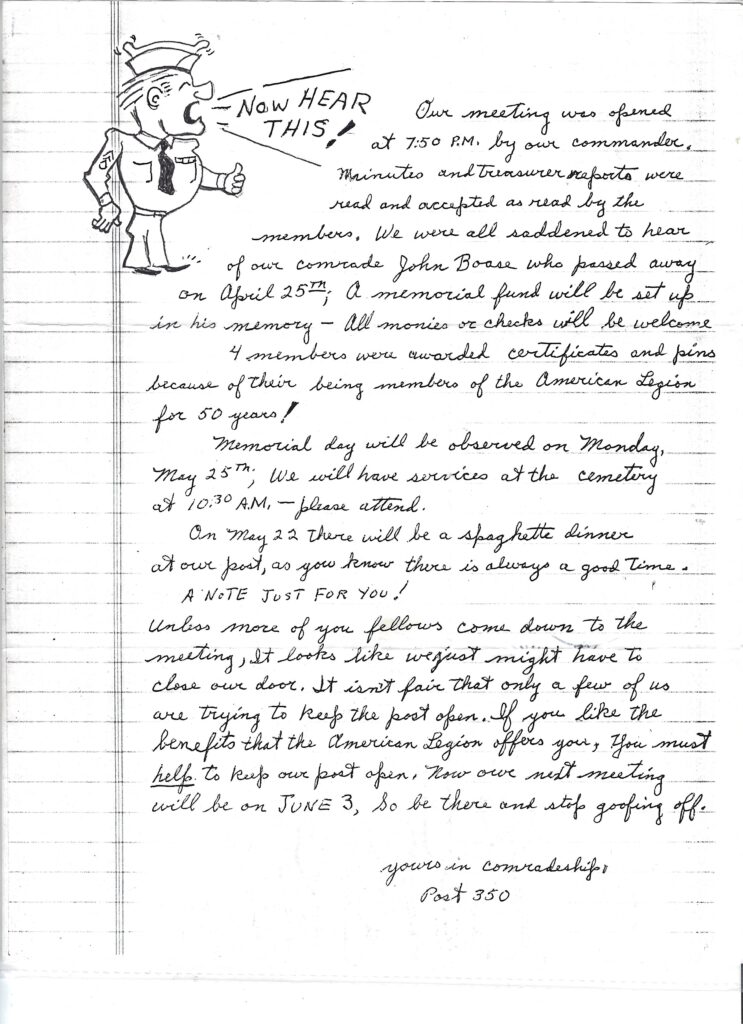 NOW HEAR
THIS!
Our meeting was opened
at 7:50 P.M. by our commander.
Mninutes and Treasurer reports were
read and accepted as read by the
members. We were all saddened to hear
of our comrade John Boase who passed away
on April 25TH; A memorial fund will be set up
in his memory - All monies or checks will be welcome
4 members were awarded certificates and pins
because of their being members of the American Legion
for 50 years!
Memorial day will be observed on Monday,
May 25TH; We will have services at the cemetery
at 10:30 A.M. - please attend.
On May 22 There will be a spaghette dinner
at our post, as you know there is always a good Time.
A NOTE JUST FOR YOU!
Unless more of you fellows come down to the
meeting, It looks like we just might have to
close our door. It isn't fair that only a few of us
are trying to keep the post open. If you like the
benefits that the American Legion offers you, You must
help to keep our post open. Now our next meeting
will be on JUNE 3, So be there and stop goofing off.
yours in comradeship,
Post 350